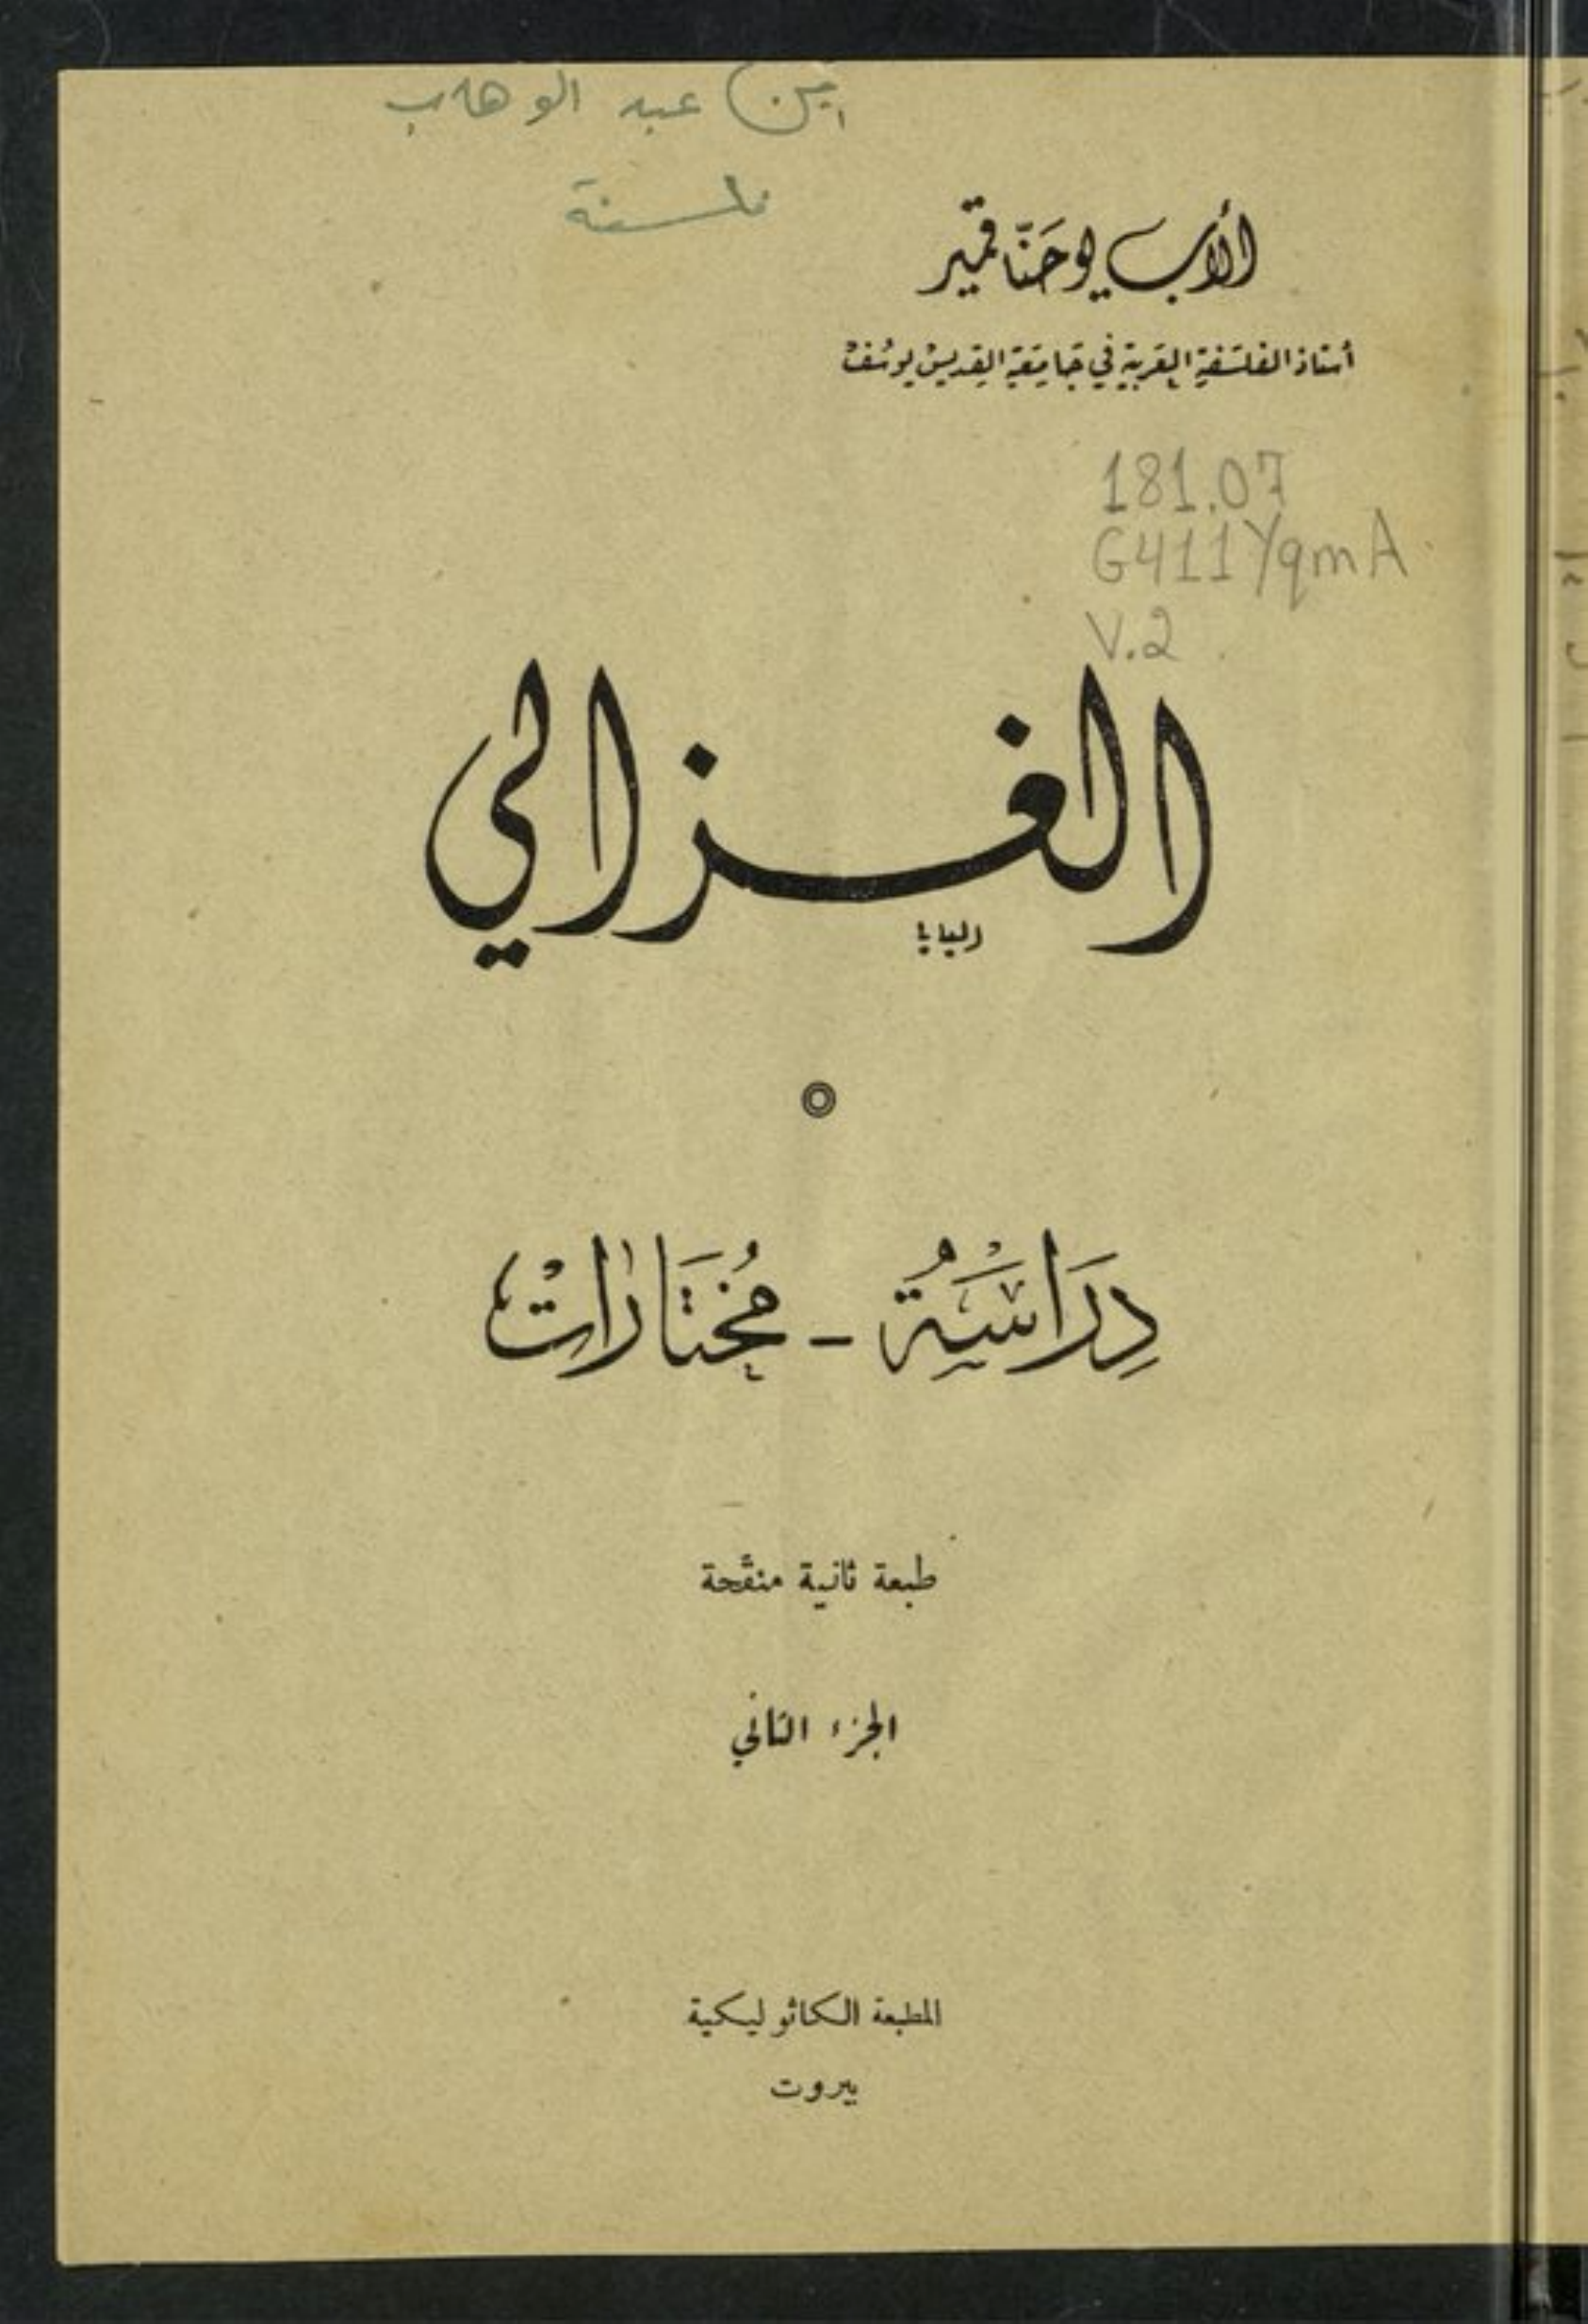 امين عبد الوهاب
فلسفة
الأب يوحَنّا قمَير
أستاذ الفلسَفةِ العَربيّةِ في جَامِعَةِ القِدّيسْ يُوسُفْ
181.07
G411YqmA
V.2
الغزالي
البابا
دِرَاسَةٌ - مُختَارَاتْ
طبعة ثانية منقَّحة
الجزء الثاني
المطبعة الكاثوليكية
بيروت